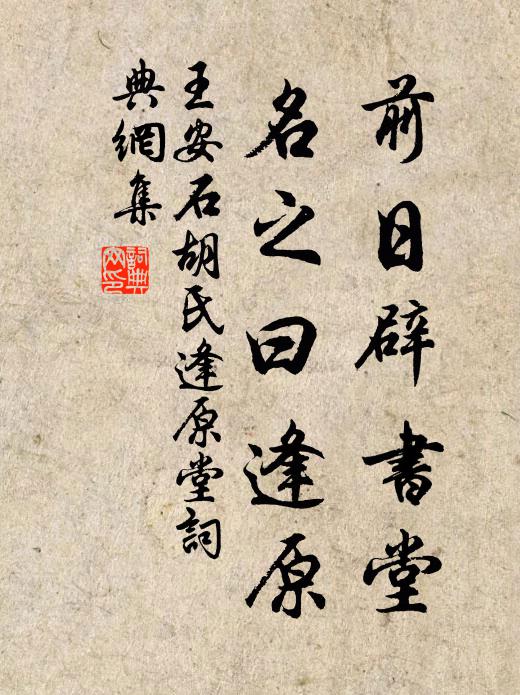 前日辟書堂
名之曰逢原
王安石胡氏逢原堂詞
典網集
詞典
网印